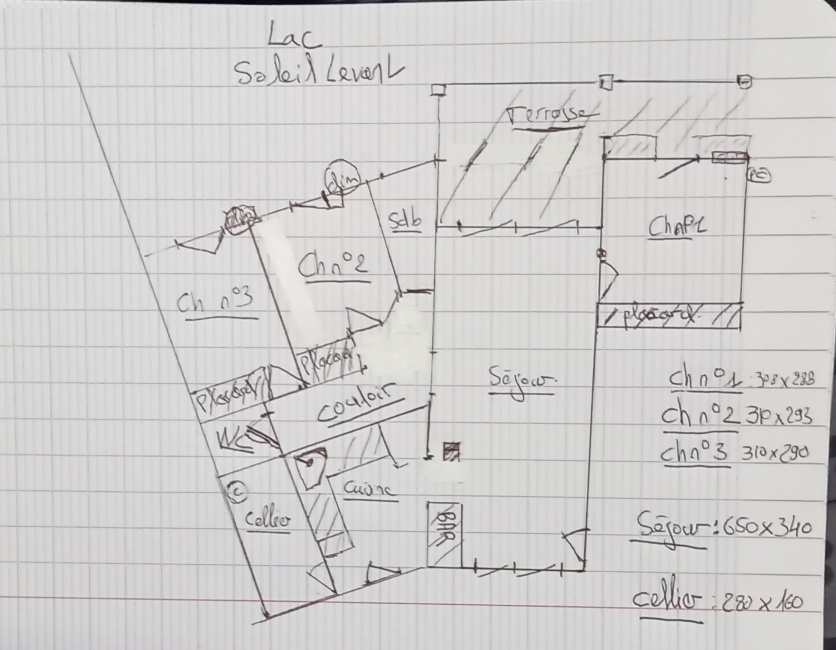 Lac
Soleil Levant
Terrasse
clim
Sdb
Ch n°1
Ch n°2
Ch n°3
placard
placard
placard
Séjour
couloir
WC
Cuisine
C
Cellier
BAR
Ch n°1 : 303 x 288
Ch n°2 310 x 293
Ch n°3 310 x 290
Séjour : 650 x 340
Cellier : 280 x 160